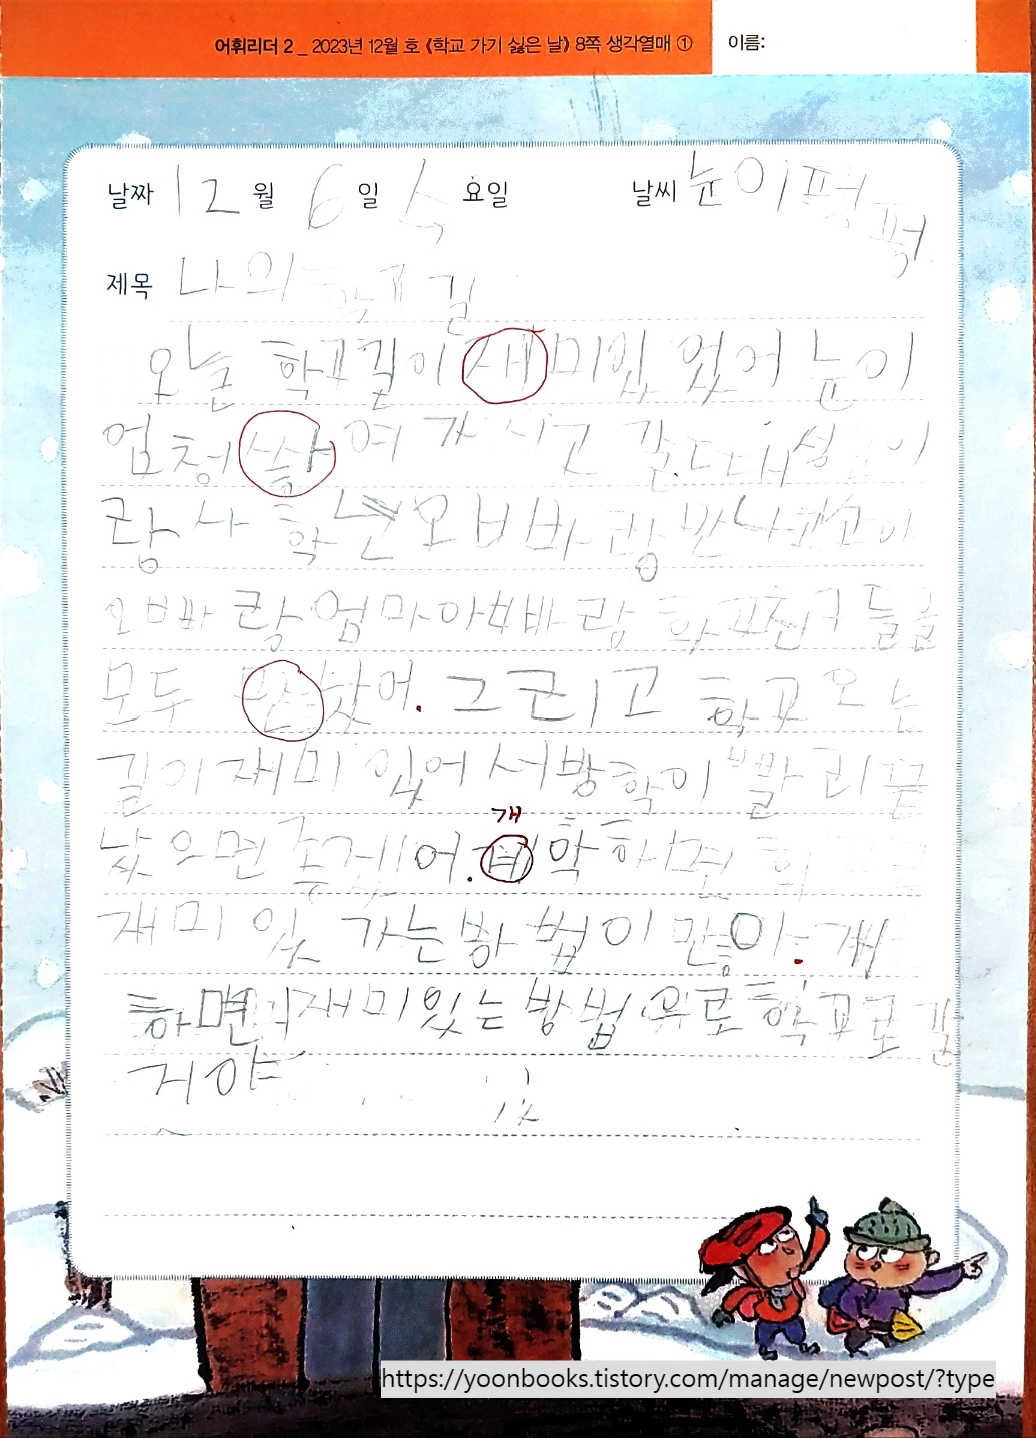 어휘리더 2 _ 2023년 12월 호 《학교 가기 싫은 날》 8쪽 생각열매 ① 이름:
날짜 12 월 6 일 수 요일 날씨 눈이펑펑
제목 나의 학교 길
오늘 학교길이 재미있 었어 눈이
엄청 여 가 지고
랑 사 학년오빠랑 만나고
오빠랑엄마아빠랑 학교친구들을
모두 났어. 그리고 학교 오는
길이 재미 있어서방학이 빨리끝
났으면 좋겠어. 개 학하면 학
재미 있 가는방법이 많아. 개
하면 재미있는방법으로 학교로갈
거야
https://yoonbooks.tistory.com/manage/newpost/?type